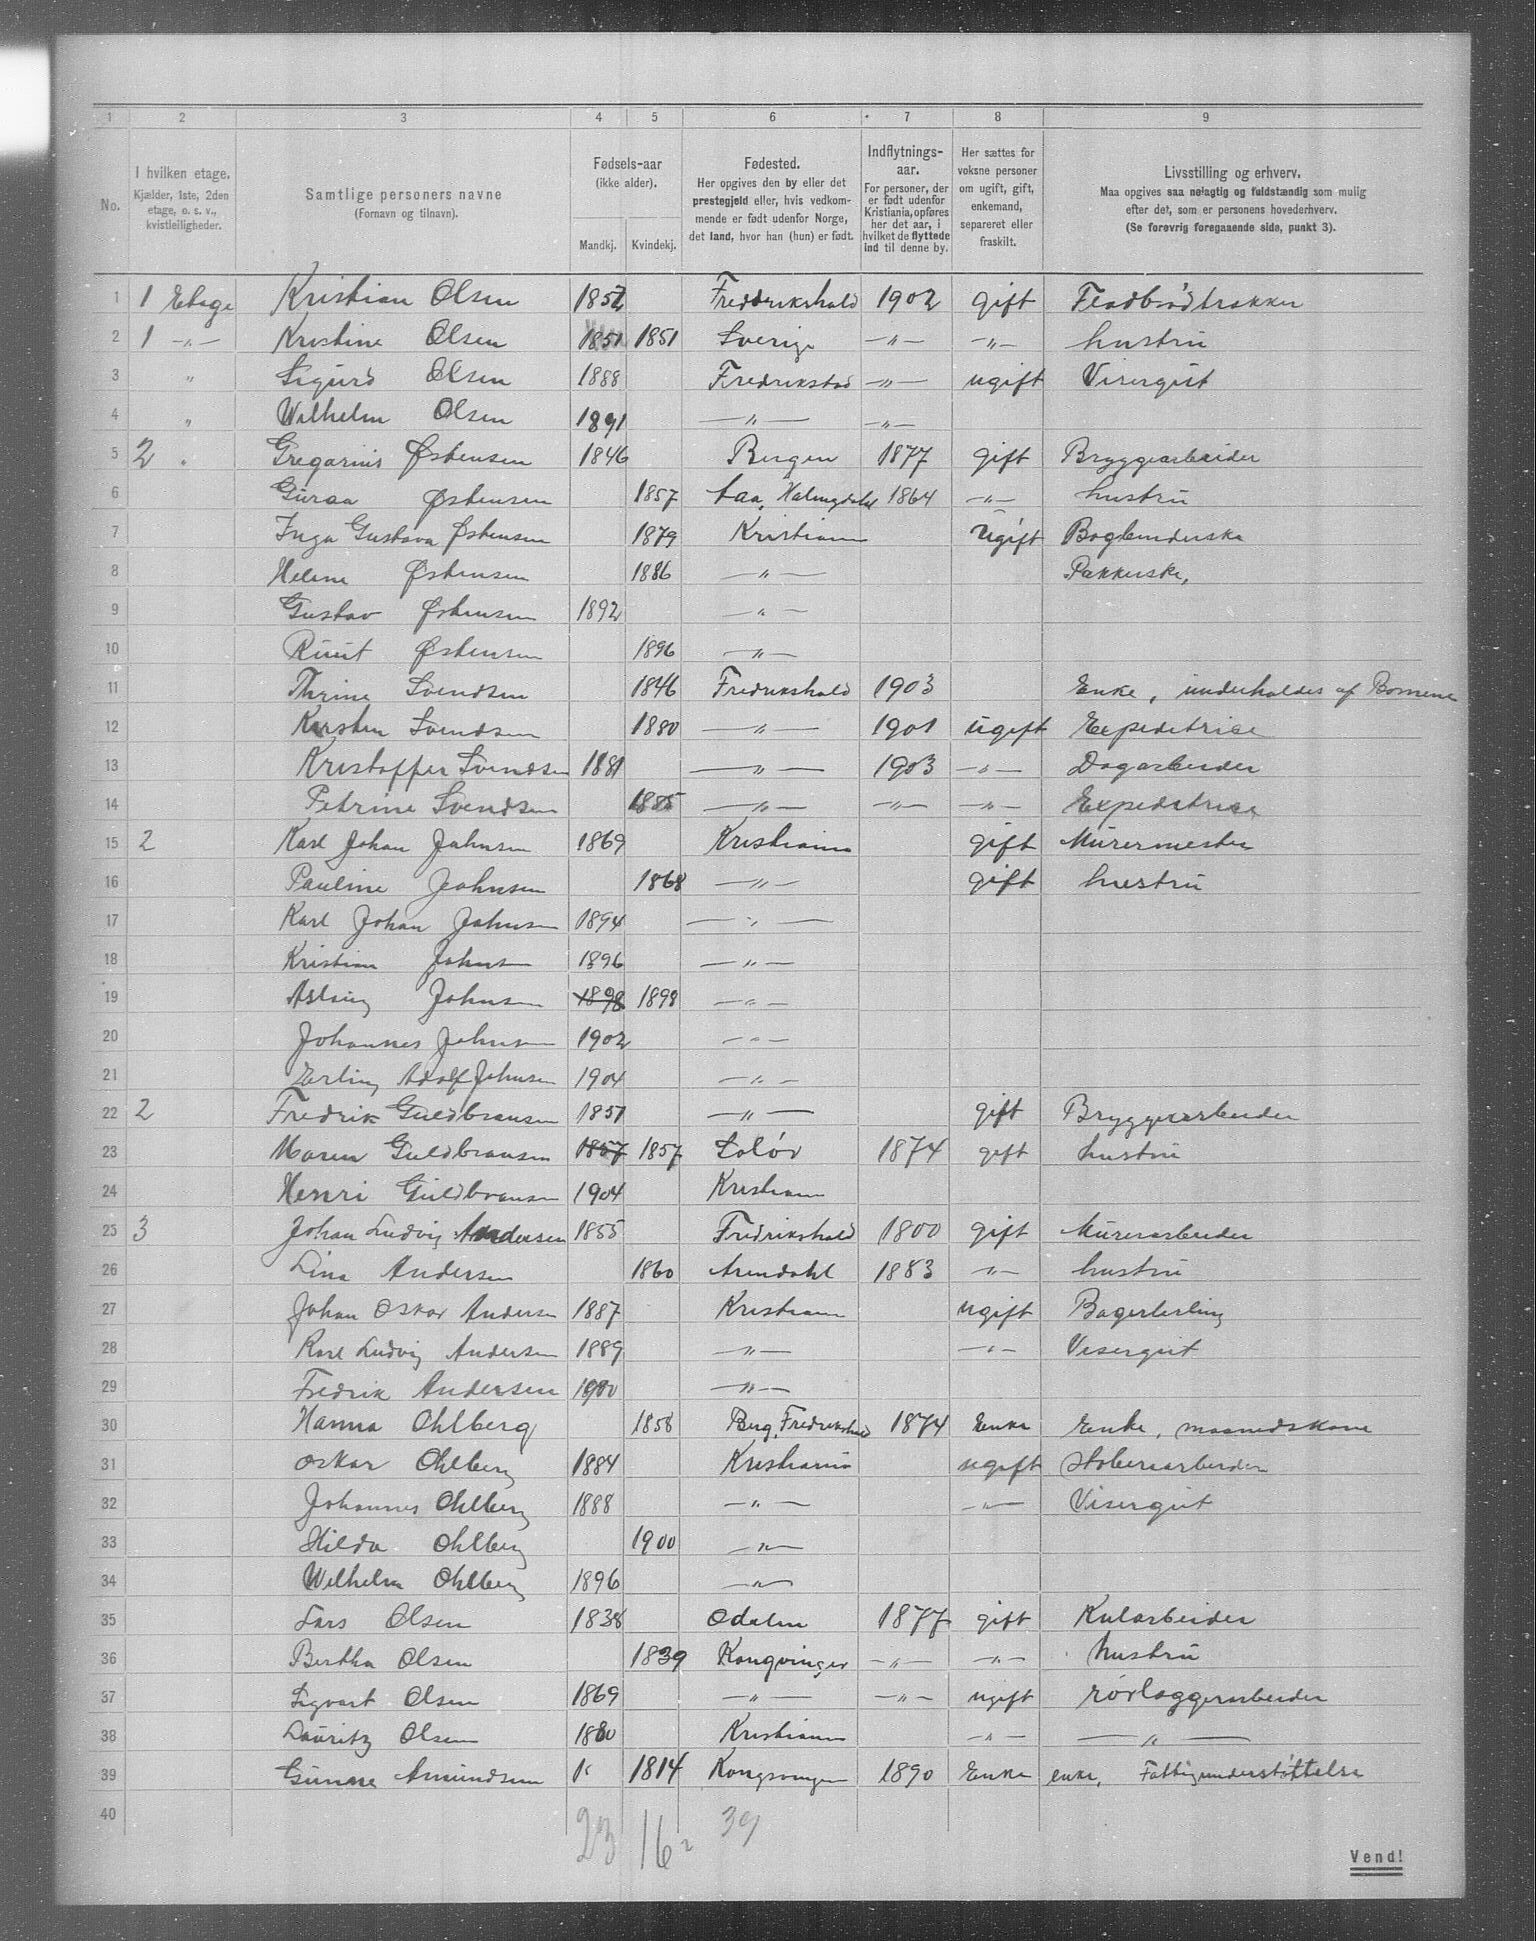 1 2 3 4 5 6 7 8 9
No.
I hvilken etage.
Kjælder, 1ste, 2den
etage, o. s. v.,
kvistleiligheder.
Samtlige personers navne
(Fornavn og tilnavn).
Fødsels-aar
(ikke alder).
Mandkj. Kvindekj.
Fødested.
Her opgives den by eller det
prestegjeld eller, hvis vedkom-
mende er født udenfor Norge,
det land, hvor han (hun) er født.
Indflytnings-
aar.
For personer, der
er født udenfor
Kristiania, opføres
her det aar, i
hvilket de flyttede
ind til denne by.
Her sættes for
voksne personer
om ugift, gift,
enkemand,
separeret eller
fraskilt.
Livsstilling og erhverv.
Maa opgives saa nøiagtig og fuldstændig som mulig
efter det, som er personens hovederhverv.
(Se forøvrig foregaaende side, punkt 3).
1 1 Etage Kristian Olsen 1852 Fredrikshald 1902 gift Fladbrødtrakker
2 1 -"- Kristine Olsen 1851 1851 Sverige -"- -"- hustru
3 " Sigurd Olsen 1888 Fredrikstad -"- ugift Visergut
4 " Wilhelm Olsen 1891 -"- -"-
5 2 " Gregarius Østensen 1846 Bergen 1877 gift Bryggearbeider
6 Guraa Østensen 1857 Aaa, Halingdahl 1864 -"- hustru
7 Inga Gustava Østensen 1879 Kristiania ugift Bogbinderske
8 Helene Østensen 1886 -"- Pakkerske,
9 Gustav Østensen 1892 -"-
10 Ruut Østensen 1896 -"-
11 Thrine Svendsen 1846 Fredrikshald 1903 Enke, underholdes af Børnene
12 Kirsten Svendsen 1880 -"- 1901 ugift Expeditrice
13 Kristoffer Svendsen 1881 -"- 1903 -"- Dagarbeider
14 Petrine Svendsen 1885 -"- -"- -"- Expeditrice
15 2 Karl Johan Johnsen 1869 Kristiania gift Murermester
16 Pauline Johnsen 1868 -"- gift hustru
17 Karl Johan Johnsen 1894 -"-
18 Kristian Johnsen 1896 -"-
19 Aslaug Johnsen 1898 1898 -"-
20 Johannes Johnsen 1902 -"-
21 Erling Adolf Johnsen 1904 -"-
22 2 Fredrik Guldbransen 1851 -"- gift Bryggearbeider
23 Maren Guldbransen 1857 1857 Solør 1874 gift hustru
24 Henri Guldbransen 1904 Kristiania
25 3 Johan Ludvig Andersen 1855 Fredrikshald 1800 gift Murerarbeider
26 Lina Andersen 1860 Arendahl 1883 -"- hustru
27 Johan Oskar Andersen 1887 Kristiania ugift Bagerlerling
28 Karl Ludvig Andersen 1889 -"- -"- Visergut
29 Fredrik Andersen 1900 -"-
30 Hanna Ohlberg 1858 Berg, Fredrikshald 1874 Enke Enke, maanedskone
31 Oskar Ohlberg 1884 Kristiania ugift Støberiarbeider
32 Johannes Ohlberg 1888 -"- -"- Visergut
33 Hilda Ohlberg 1900 -"-
34 Wilhelm Ohlberg 1896 -"-
35 Lars Olsen 1838 Odalen 1877 gift Kularbeider
36 Bertha Olsen 1839 Kongvinger -"- -"- hustru
37 Sigvart Olsen 1869 -"- -"- ugift rørlæggerarbeider
38 Lauritz Olsen 1880 Kristiania -"- -"-
39 Gunare Amundsen K 1814 Kongsvinger 1890 Enke enke, Fattigunderstøttelse
40
23 16 39
Vend!